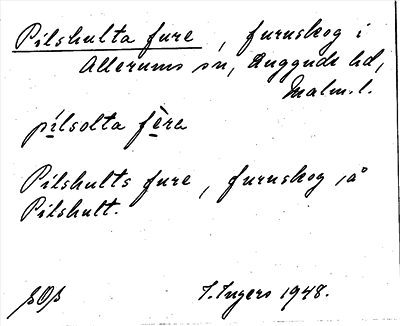 Pilshulta fure, furuskog i
Allerums sn, Luggude hd,
Malm. l.
pilsolta fèra
Pilshults fure, furuskog, å
Pilshult.
I. Ingers 1948.